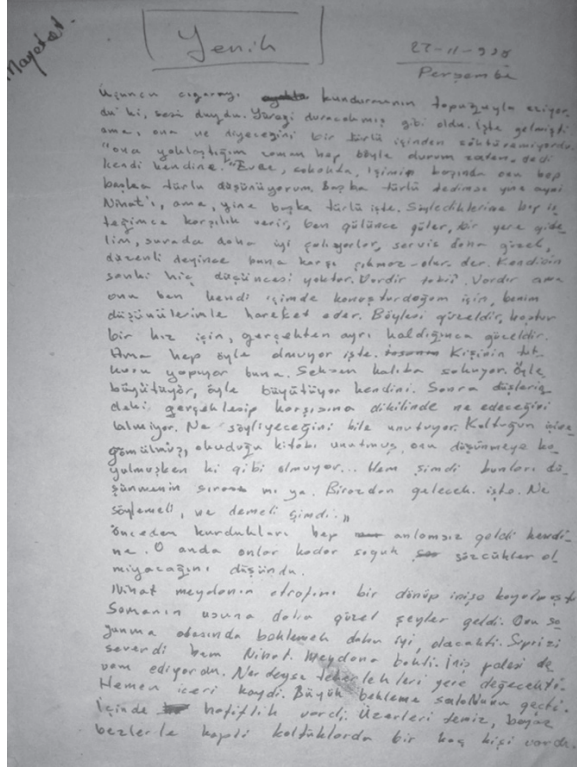 Mayıs
Yenik
Perşembe
Üçüncü cıgarayı kundurasının topuğuyla eziyor
du ki, sesi duydu. Yüreği duracakmış gibi oldu. İşte gelmişti
ama, ona ne diyeceğini bir türlü içinden söktüremiyordu.
"Ona yaklaştığım zaman hep böyle durum zaten. dedi
kendi kendine. "Evde, sokakda, işimin başında onu hep
başka türlü düşünüyorum. Başka türlü dedimse yine aynı
Nihat'ı, ama, yine başka türlü işte. Söylediklerime hep is
teğimce karşılık verir, ben gülünce güler, bir yere gide
lim, surada daha iyi çalıyorlar, servis daha güzel,
düzenli deyince buna karşı çıkmaz - olur. der. Kendinin
sanki hiç düşüncesi yoktur. Vardır tabiî. Vardır ama
onu ben kendi içimde konuşturduğum için, benim
düşüncelerimle hareket eder. Böylesi güzeldir,
bir kız için, gerçekten ayrı kaldığınca güzeldir.
Ama hep öyle olmuyor işte. Kişinin tut
kusu yapıyor bunu. Seksen kalıba sokuyor. Öyle
büyütüyor, öyle büyütüyor kendini. Sonra düşlerin
deki gerçekleşip karşısına dikilinde ne edeceğini
bilmiyor. Ne söyliyeceğini bile unutuyor. Koltuğun içine
gömülmüş, okuduğu kitabı unutmuş, onu düşünmeye ko
yulmuşken ki gibi olmuyor... Hem şimdi bunları dü
şünmenin sırası mı ya. Birazdan gelecek işte. Ne
söylemeli, ne demeli şimdi."
Önceden kurdukları hep anlamsız geldi kendi-
ne. O anda onlar kadar soğuk sözcükler ol
mıyacağını düşündü.
Nihat meydanın etrafını bir dönüp inişe koyulmuştu
Semanın usuna daha güzel şeyler geldi. Onu so
yunma odasında beklemek daha iyi, olacaktı. Süprizi
severdi hem Nihat. Meydana baktı. İniş de
vam ediyordu. Nerdeyse tekerlekleri yere değecekti.
Hemen içeri kaydı. Büyük bekleme salonunu geçti.
İçinde hafiflik vardı. Üzerleri temiz, beyaz
bezlerle kaplı koltuklarda bir kaç kişi vardı.